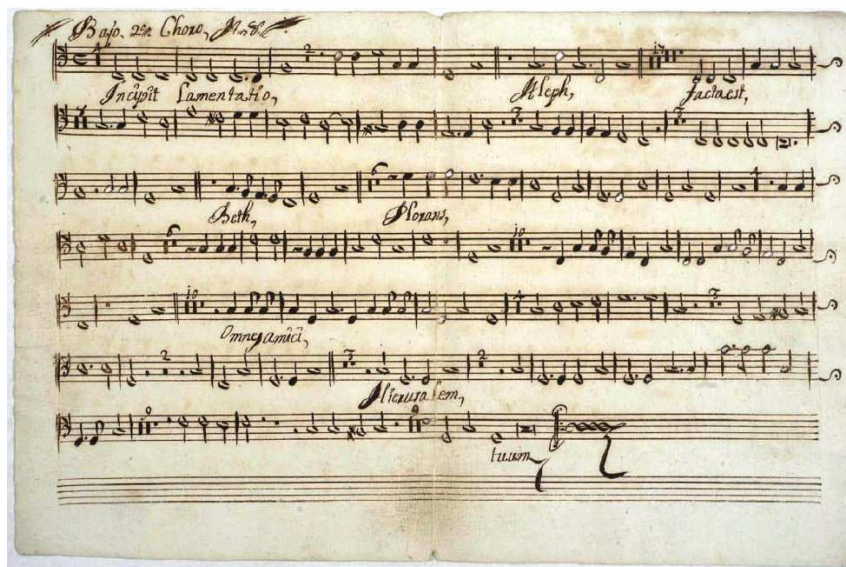 Bajo. 2º. Choro,
Incipit Lamentatio, Aleph, factaest,
Beth, Plorans,
Omnes amici,
Hierusalem,
tuum